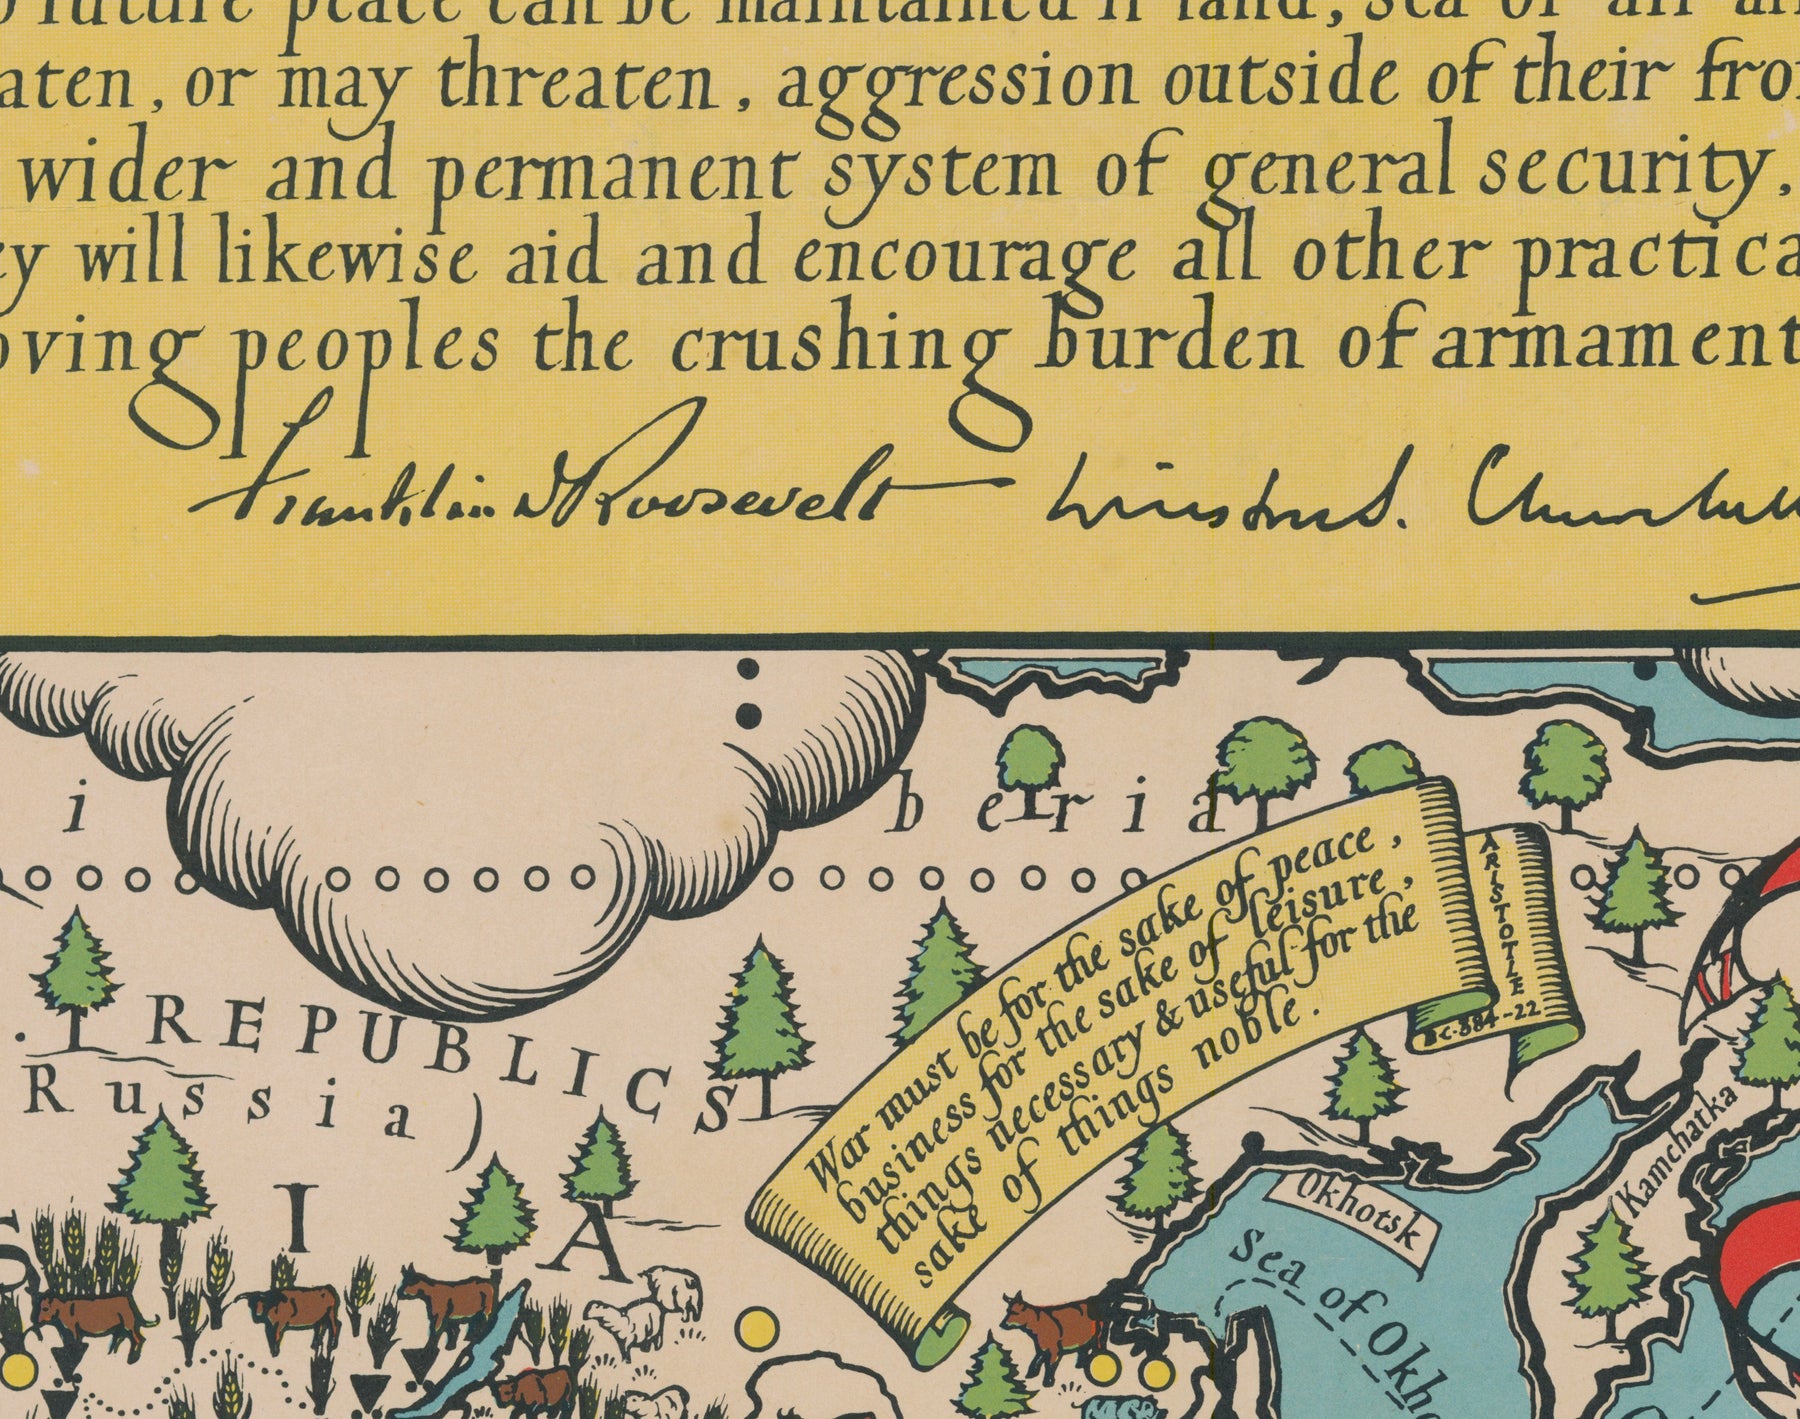 future peace can be maintained if land, sea or air
aten, or may threaten, aggression outside of their fro
wider and permanent system of general security,
ey will likewise aid and encourage all other practica
oving peoples the crushing burden of armament
Franklin D Roosevelt Winston S. Churchill
i beria
War must be for the sake of peace,
business for the sake of leisure,
things necessary & useful for the
sake of things noble.
ARISTOTLE
BC. 384-22
. REPUBLICS
Russia)
S I A
Kamchatka
Okhotsk
Sea of Okh